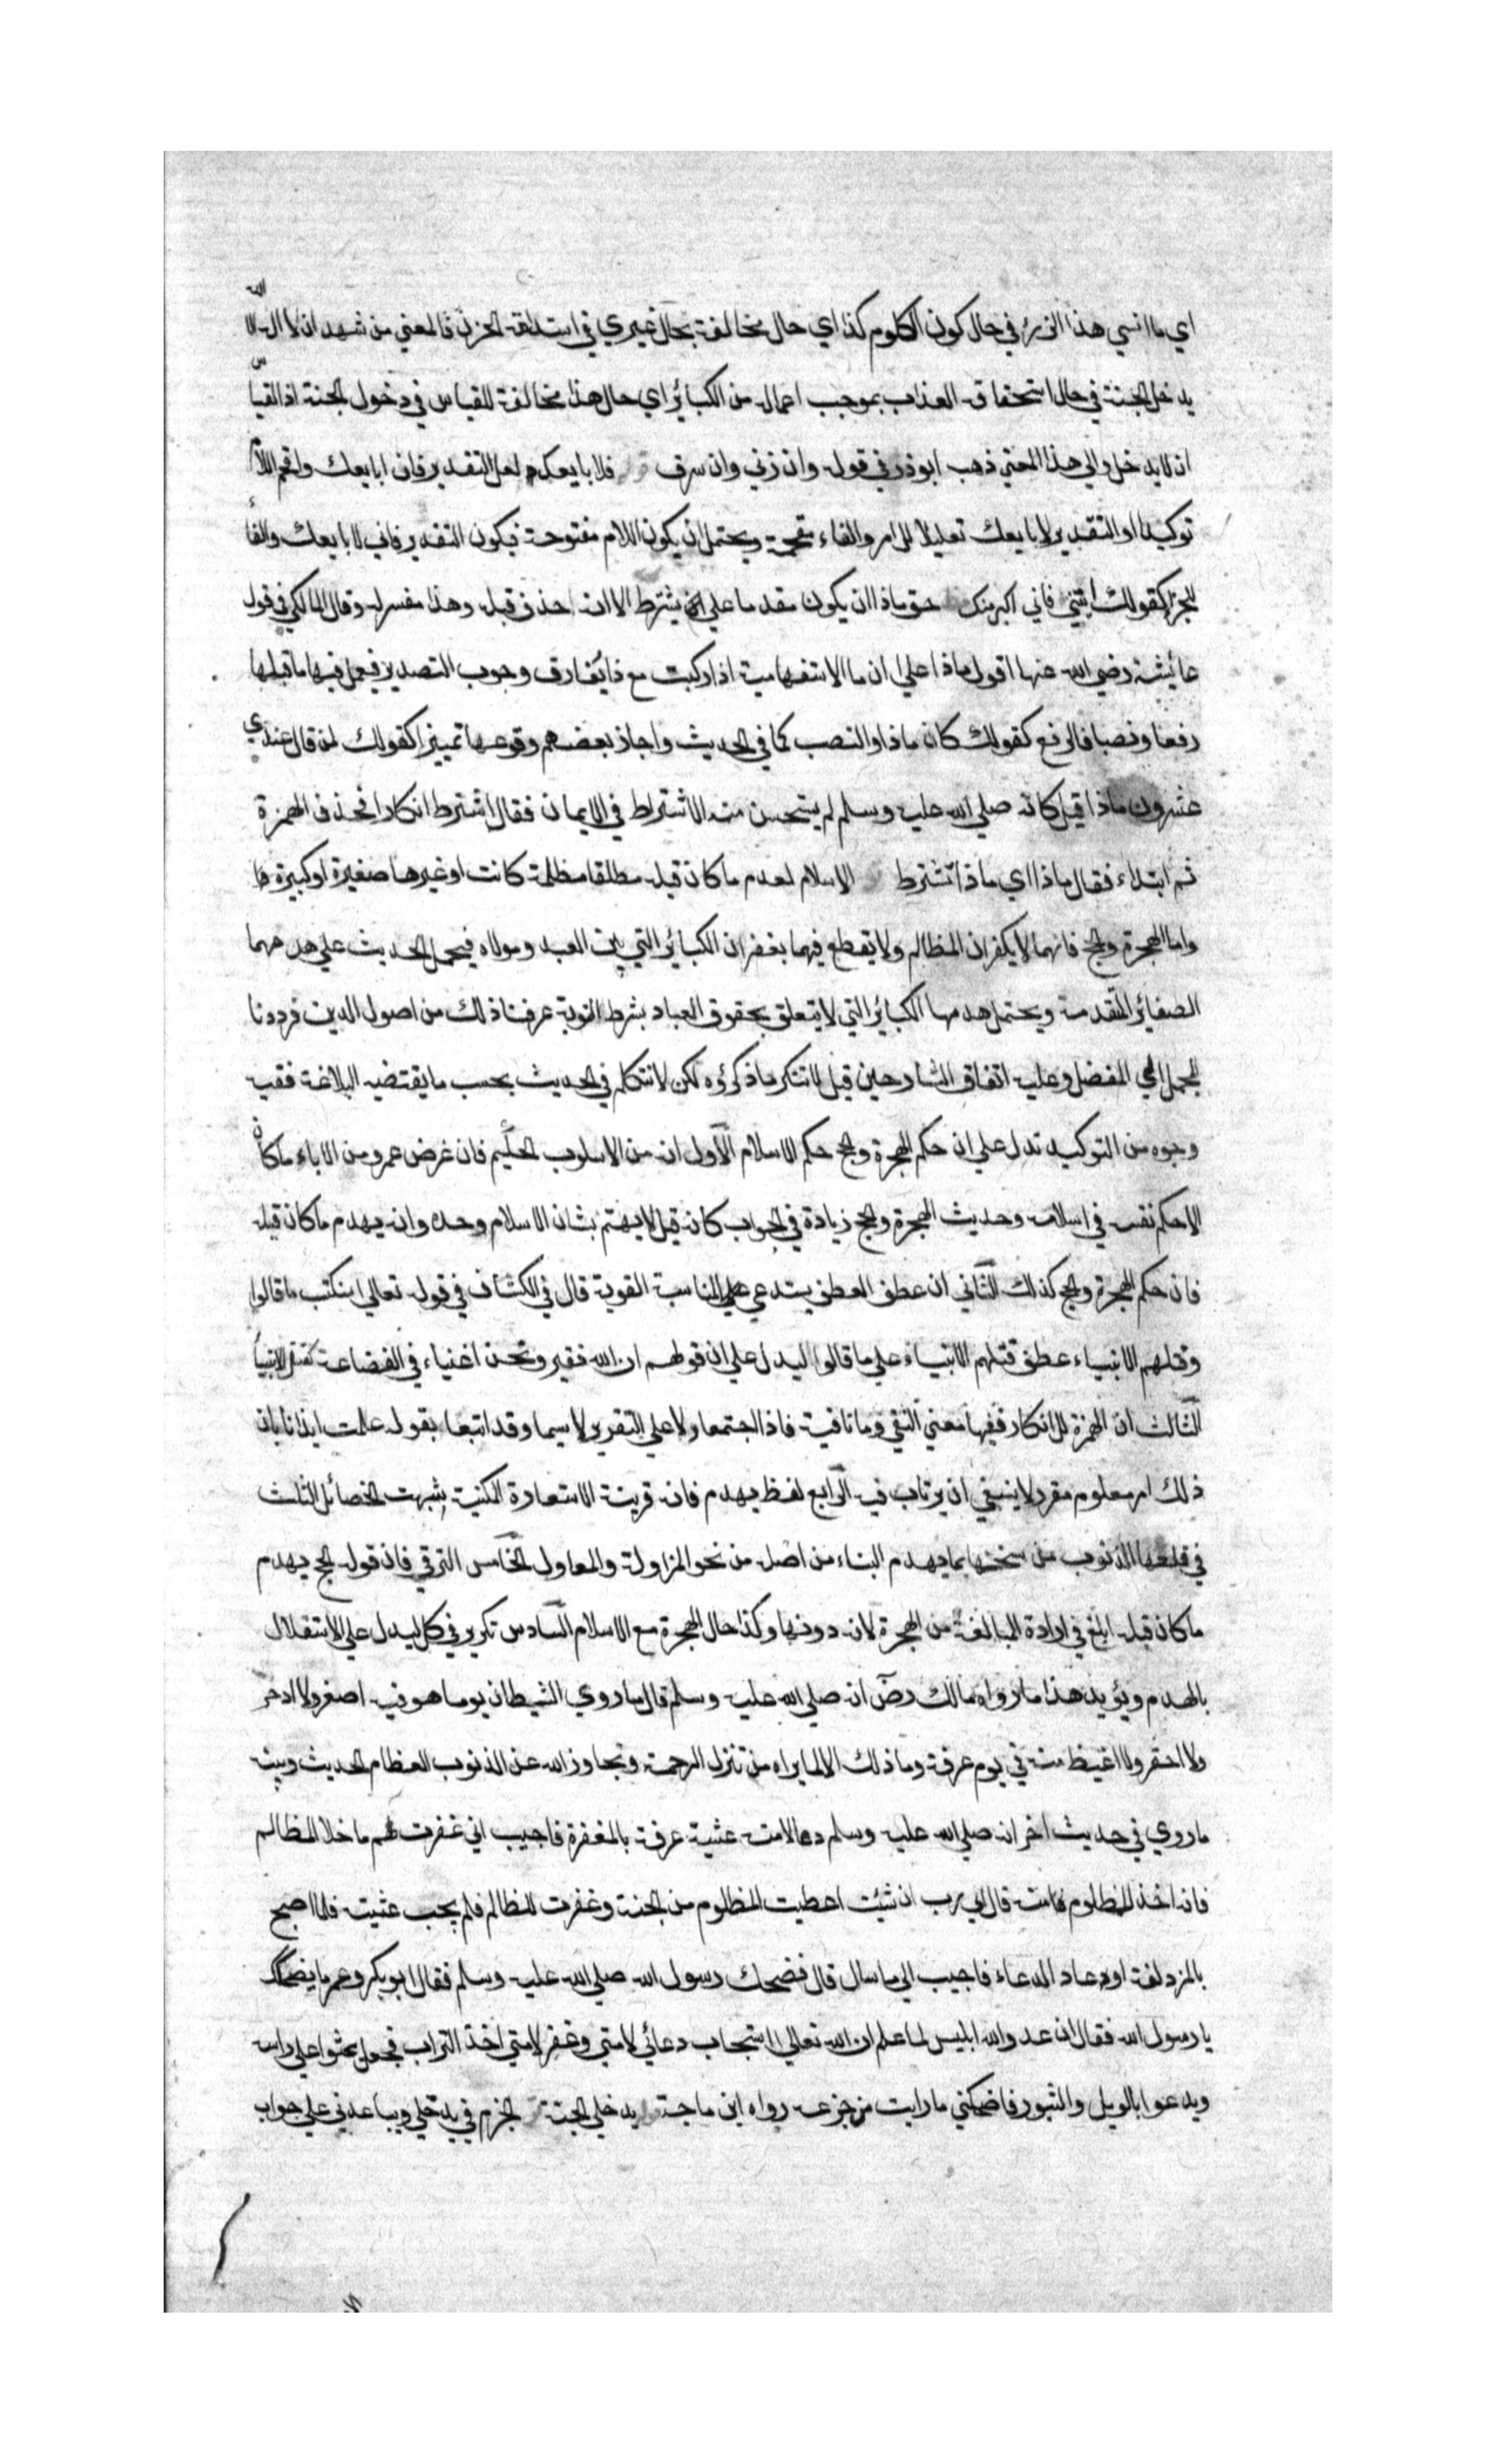 اي ما انسي هذا الذي في حال كون الكلوم كذا اي حال مخالفة بحال غيري في استلاقه الحزن فالمعني من شهد ان لا اله الا الله
يدخل الجنة في حال استحقاقه العذاب بموجب اعماله من الكبائر اي حال هذا مخالفة للقياس في دخول الجنة اذ القياس
ان لا يدخل والي هذا المعني ذهب ابوذر في قوله وان زني وان سرق قوله فلابايعك لعل التقدير فان ابايعك واقحم اللام
توكيدا او التقدير لابايعك تعليلا للامر والفاء مقحمة ويحتمل ان يكون اللام مفتوحة فيكون التقدير فاني لابايعك والفاء
للجزا كقولك ائتني فاني اكرمنك حق ماذا ان يكون مقدما علي يشترط الا انه حذف قبله وهذا مفسر له وقال المالكي في قول
عائيشة رضي الله عنها اقول ماذا علي ان ما الاستفهامية اذا ركبت مع ذا يفارق وجوب التصدير فيعمل فيها ما قبلها
رفعا ونصبا فالرفع كقولك كان ماذا والنصب كما في الحديث واجاز بعضهم وقوعها تمييزا كقولك لمن قال عندي
عشرون ماذا قيل كانه صلي الله عليه وسلم لم يستحسن منه الاشتراط في الايمان فقال اتشترط انكارا فحذف الهمزة
ثم ابتداء فقال ماذا اي ماذا تشترط الاسلام لهدم ما كان قبله مطلقا مظلمة كانت او غيرها صغيرة او كبيرة
واما الهجرة والحج فانهما لا يكفران المظالم ولا يقطع فيهما بغفران الكبائر التي بين العبد ومولاه فيحمل الحديث علي هدمهما
الصغائر المتقدمة ويحتمل هدمها الكبائر التي لا يتعلق بحقوق العباد بشرط التوبة عرفنا ذلك من اصول الدين فرددنا
المجمل الي المفصل وعليه اتفاق الشارحين قيل لا ننكر ما ذكروه لكن لا نتكلم في الحديث بحسب ما يقتضيه البلاغة ففيه
وجوه من التوكيد تدل علي ان حكم الهجرة والحج حكم الاسلام الاول انه من الاسلوب الحكيم فان غرض عمرو من الاباء ما كان
الا حكم نفسه في اسلامه وحديث الهجرة والحج زيادة في الجواب كانه قيل لا يهتم بشان الاسلام وحده وانه يهدم ما كان قبله
فان حكم الهجرة والحج كذلك الثاني ان عطف العطف يستدعي علي المناسبة القوية قال في الكشاف في قوله تعالي سنكتب ما قالوا
وقتلهم الانبياء عطف قتلهم الانبياء علي ما قالوا ليدل علي ان قولهم ان الله فقير ونحن اغنياء في الفضاعة كقتل الانبياء
الثالث ان الهمزة للانكار ففيها معني النفي وما نافية فاذا اجتمعا دلا علي التقرير لا سيما وقد اتبعا بقوله علمت ايذانا بان
ذلك امر معلوم مقرر لا ينبغي ان يرتاب فيه الرابع لفظ يهدم فانه قرينة الاستعارة المكنية شبهت الخصائل الثلث
في قلعها الذنوب من سنخها بما يهدم البناء من اصله من نحو المزاولة والمعاول الخامس الترقي فان قوله الحج يهدم
ما كان قبله ابلغ في ارادة المبالغة من الهجرة لانه دونها وكذا حال الهجرة مع الاسلام السادس تكرير في كل ليدل علي الاستقلال
بالهدم ويؤيد هذا ما رواه مالك رض انه صلي الله عليه وسلم قال ما روي الشيطان يوما هو فيه اصغر ولا ادحر
ولا احقر ولا اغيظ منه في يوم عرفة وما ذلك الا لما يراه من تنزل الرحمة وتجاوز الله عن الذنوب العظام الحديث وبينه
ما روي في حديث اخر انه صلي الله عليه وسلم دعا لامته عشية عرفة بالمغفرة فاجيب اني غفرت لهم ما خلا المظالم
فانه اخذ للمظلوم قال اي رب ان شئت اعطيت المظلوم من الجنة وغفرت للظالم فلم يجب عشيته فلما اصبح
بالمزدلفة اوه عاد الدعاء فاجيب الي ما سال قال فضحك رسول الله صلي الله عليه وسلم فقال ابو بكر وعمر ما يضحكك
يا رسول الله فقال ان عدو الله ابليس لما علم ان الله تعالي استجاب دعائي لامتي وغفر لامتي اخذ التراب فجعل يحثوا علي راسه
ويدعوا بالويل والثبور فاضحكني ما رايت من جزعه رواه ابن ماجة يدخلي الجنة الجزم في يدخلي ويباعدني علي جواب